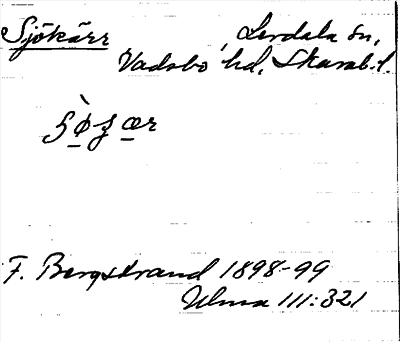 Sjökärr Lerdala sn,
Vadsbo hd, Skarab. l.
F. Bergstrand 1898-99
Ulma 111:321